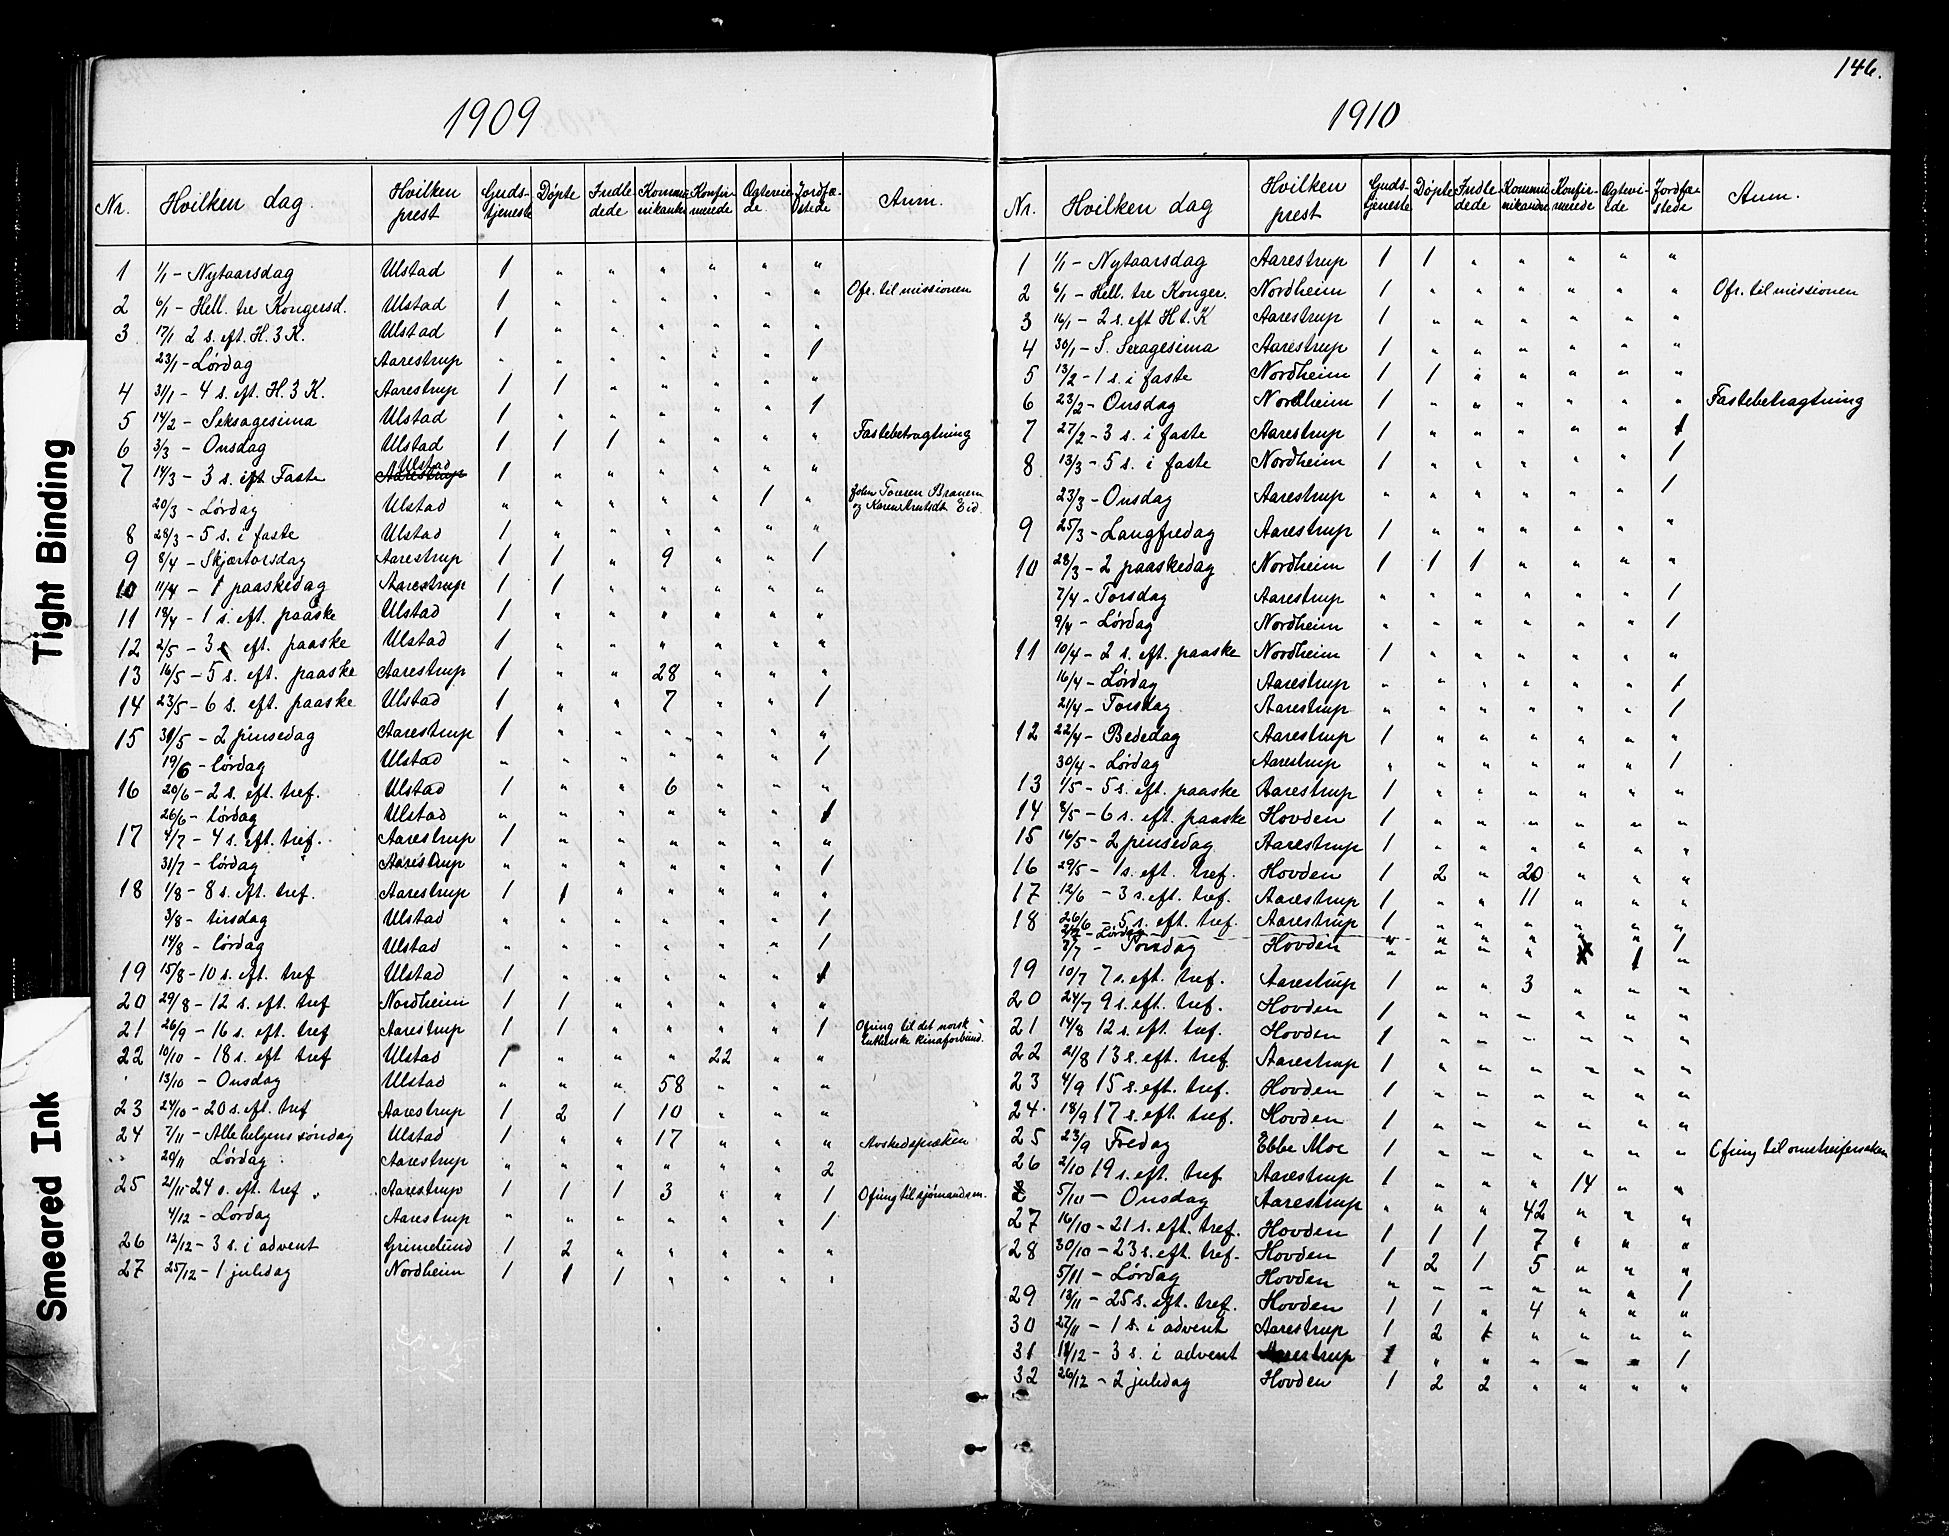 146.
1909
Nr. Hvilken dag. Hvilken prest Gudstjeneste Døpte Indledede Kommunikanter Konfirmerede Ogteviede Jordfæstede Anm.
1 1/1 - Nytaarsdag Ulstad 1 " " " " " "
2 6/1 - Hell. tre Kongersd. Ulstad 1 " " " " " " Ofr. til missionen
3 17/1 2 s. eft. H. 3 K. Ulstad 1 " " " " " "
23/1 - Lørdag Aarestrup " " " " " " 1
4 31/1 - 4 s. eft. H. 3 K. Aarestrup 1 1 " " " " "
5 14/2 - Seksagesima Ulstad 1 " " " " " 1
6 3/3 - Onsdag Ulstad 1 1 1 " " " " Fastebetragtning
7 14/3 - 3 s. i Faste Ulstad 1 " " " " " "
20/3 - Lørdag Ulstad " " " " " 1 " John Toresen Eid.
8 28/3 - 5 s. i faste Ulstad 1 " " " " " "
9 8/4 - Skjærtorsdag Aarestrup 1 1 " 9 " " 1
10 11/4 - 1 paaskedag Aarestrup 1 1 " " " " "
11 18/4 - 1 s. eft. paaske Ulstad 1 " " " " " "
12 2/5 - 3 s. eft. paaske Ulstad 1 " " " " " "
13 16/5 - 5 s. eft. paaske Aarestrup 1 " " 28 " " "
14 23/5 - 6 s. eft. paaske Ulstad 1 " " 7 " " 1
15 31/5 - 2 pinsedag Aarestrup 1 " " " " " "
19/6 - lørdag Ulstad " " " " " " 1
16 20/6 - 2 s. eft. tref. Ulstad 1 " " 6 " " "
26/6 - lørdag Ulstad " " " " " " 1
17 4/7 - 4 s. eft. tref. Aarestrup 1 " " " " " "
31/7 - lørdag Aarestrup " " " " " " 1
18 1/8 - 8 s. eft. tref. Aarestrup 1 1 " " " " "
3/8 - tirsdag Ulstad " " " " " " 1
14/8 - lørdag Ulstad " " " " " " 1
19 15/8 - 10 s. eft. tref Ulstad 1 " " " " " 1
20 29/8 - 12 s. eft. tref Nordheim 1 1 " " " " "
21 26/9 - 16 s. eft. tref Aarestrup 1 1 " " " " 1 Ofring til det norsk lutherske kinaforbund.
22 10/10 - 18 s. eft tref Ulstad 1 " " " 22 " "
13/10 - Onsdag Ulstad " " " 58 " " "
23 24/10 - 20 s. eft. tref Aarestrup 1 2 1 10 " " "
24 7/11 - Allehelgenssøndag Ulstad 1 " " 17 " " " Avskedspræken
20/11 Lørdag Aarestrup " " " " " " 2
25 21/11 - 24 s. eft. tref Aarestrup 1 1 1 3 " " 1 Ofring til sjømandsm.
4/12 - Lørdag Aarestrup " " " " " " 1
26 12/12 - 3 s. i advent Grimelund 1 2 " " " " "
27 25/12 - 1 juledag Nordheim 1 1 1 " " " "
1910
Nr. Hvilken dag Hvilken prest Gudstjeneste Døpte Indledede Kommunikanter Konfirmerede Ogteviede Jordfæstede Anm.
1 1/1 - Nytaarsdag Aarestrup 1 1 " " " " "
2 6/1 - Hell. tre Konger. Nordheim 1 " " " " " " Ofr. til missionen
3 16/1 - 2 s. eft H t. K Aarestrup 1 " " " " " "
4 30/1 - S. Sexagesima Aarestrup 1 " " " " " "
5 13/2 - 1 s. i faste Nordheim 1 1 " " " " "
6 23/2 - Onsdag Nordheim 1 " " " " " " Fastebetragtning
7 27/2 - 3 s. i faste Aarestrup 1 " " " " " 1
8 13/3 - 5 s. i faste Nordheim 1 " " " " " 1
23/3 - Onsdag Aarestrup " " " " " " 1
9 25/3 - Langfredag Aarestrup 1 " " " " " "
10 28/3 - 2 paaskedag Nordheim 1 1 1 " " " "
7/4 - Torsdag Aarestrup " " " " " " 1
9/4 - Lørdag Nordheim " " " " " " 1
11 10/4 - 2 s. eft. paaske Nordheim 1 " " " " " "
16/4 - Lørdag Aarestrup " " " " " " 1
21/4 - Torsdag Aarestrup " " " " " " 1
12 22/4 - Bededag Aarestrup 1 " " " " " "
30/4 - Lørdag Aarestrup " " " " " " 1
13 1/5 - 5 s. eft. paaske Aarestrup 1 " " " " " "
14 8/5 - 6 s. eft. paaske Hovden 1 " " " " " "
15 16/5 - 2 pinsedag Aarestrup 1 " " " " " "
16 29/5 - 1 s. eft. tref. Hovden 1 2 " 20 " " "
17 12/6 - 3 s. eft. tref. Aarestrup 1 " " 11 " " "
18 26/6 - 5 s. eft. tref. Aarestrup 1 " " " " " "
- Lørdag - " " " " " " 1
7/7 - Torsdag Hovden " " " " 1 "
19 10/7 7 s. eft. tref. Aarestrup 1 " " 3 " " "
20 24/7 9 s. eft. tref. Hovden 1 " " " " " "
21 14/8 12 s. eft. tref. Hovden 1 " " " " " "
22 21/8 13 s. eft. tref. Aarestrup 1 " " " " " "
23 4/9 15 s. eft. tref. Hovden 1 " " " " " "
24 18/9 17 s. eft. tref. Hovden 1 " " " " " "
25 23/9 Fredag Ebbe Moe 1 " " " " " " Ofring til
26 2/10 19 s. eft. tref Aarestrup 1 " " " 14 " "
5/10 - Onsdag Aarestrup " " " 42 " " "
27 16/10 - 21 s. eft. tref. Hovden 1 1 1 7 " " "
28 30/10 - 23 s. eft. tref. Hovden 1 2 1 5 " " "
5/11 - Lørdag Hovden " " " " " " 1
29 13/11 - 25 s. eft. tref. Hovden 1 1 " 4 " " "
30 27/11 - 1 s. i advent Aarestrup 1 2 1 " " " "
31 11/12 - 3 s. i advent Aarestrup 1 " " " " " 1
32 26/12 - 2 juledag Hovden 1 2 2 " " " "
Tight Binding
Smeared Ink